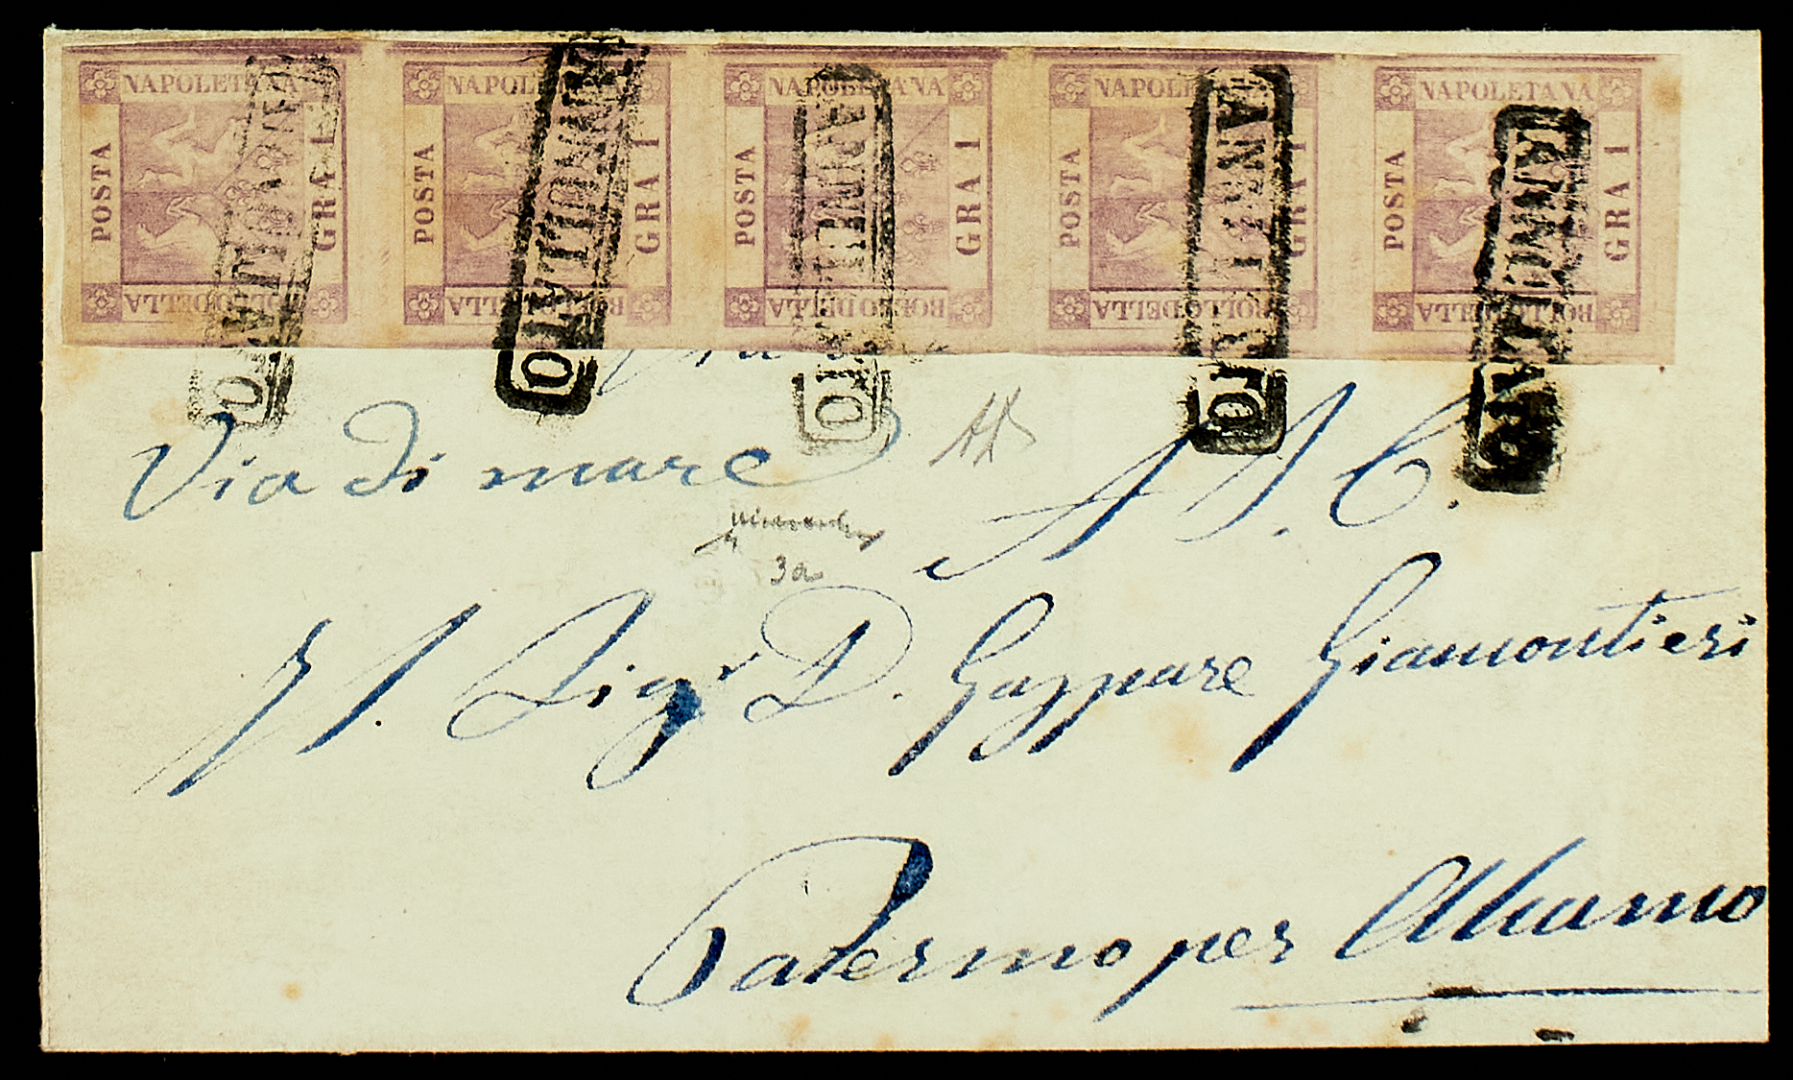 NAPOLETANA NAPOLETANA NAPOLETANA NAPOLETANA NAPOLETANA
POSTA GRA 1 POSTA GRA 1 POSTA GRA 1 POSTA GRA 1 POSTA GRA 1
BOLLO DELLA BOLLO DELLA BOLLO DELLA BOLLO DELLA BOLLO DELLA
ANNULLATO ANNULLATO ANNULLATO ANNULLATO ANNULLATO
Via di mare
A S. C.
3a
Sigr D. Gaspare Giamontieri
Palermo per Alcamo